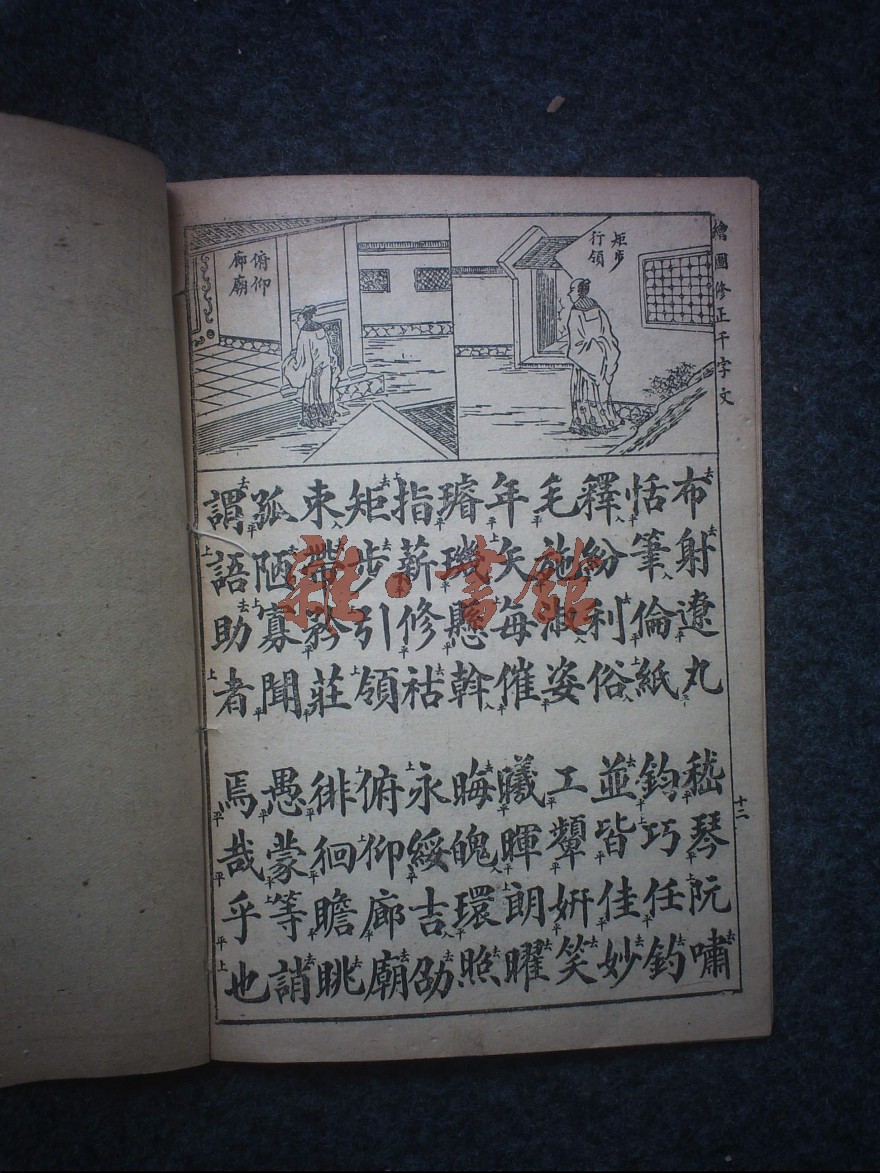 繪圖修正千字文
矩步
行領
俯仰
廊廟
布射遼丸 嵇琴阮嘯
恬筆倫紙 鈞巧任釣
釋紛利俗 並皆佳妙
毛施淑姿 工顰妍笑
年矢每催 曦暉朗曜
璿璣懸斡 晦魄環照
指薪修祜 永綏吉劭
矩步引領 俯仰廊廟
束帶矜莊 徘徊瞻眺
孤陋寡聞 愚蒙等誚
謂語助者 焉哉乎也
十二
雜·書館